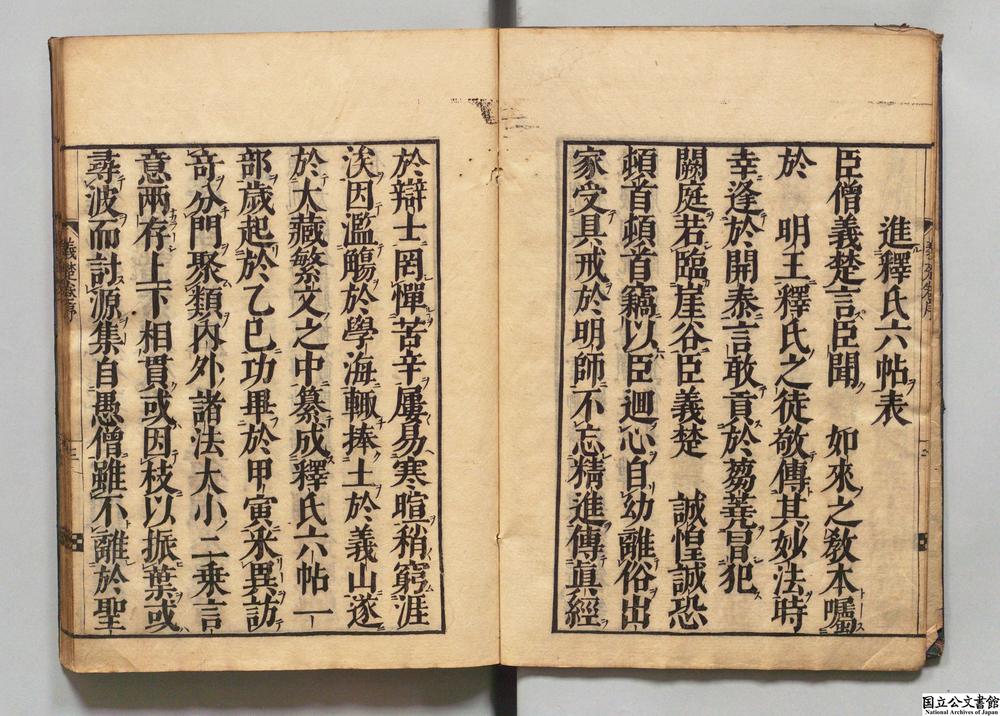 進釋氏六帖表
臣僧義楚言臣聞　如來之教本囑
於　明王釋氏之徒敬傳其妙法時
幸逢於開泰言敢貢於蒭蕘冒犯
闕庭若臨崖谷臣義楚　誠惶誠恐
頓首頓首竊以臣迴心自幼離俗出
家受具戒於明師不忘精進傳眞經
於辯士罔憚苦辛屢易寒暄稍窮涯
涘因濫觴於學海輙捧土於義山遂
於大藏繁文之中纂成釋氏六帖一
部歲起於乙巳功畢於甲寅采異訪
竒分門聚類內外諸法大小二乘言
意兩存上下相貫或因枝以振葉或
尋波而討源集自愚僧雖不離於聖
義楚卷序
国立公文書館
National Archives of Japan